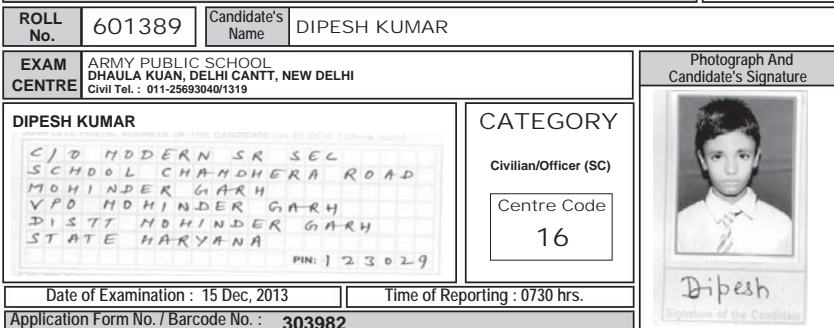 ROLL No. 601389 Candidate's Name DIPESH KUMAR
EXAM CENTRE
ARMY PUBLIC SCHOOL
DHAULA KUAN, DELHI CANTT, NEW DELHI
Civil Tel. : 011-25693040/1319
Photograph And
Candidate's Signature
DIPESH KUMAR
C/O MODERN SR SEC
SCHOOL CHAMDHERA ROAD
MOHINDER GARH
VPO MOHINDER GARH
DISTT MOHINDER GARH
STATE HARYANA
PIN: 123029
CATEGORY
Civilian/Officer (SC)
Centre Code
16
Dipesh
Signature of the Candidate
Date of Examination : 15 Dec, 2013
Time of Reporting : 0730 hrs.
Application Form No. / Barcode No. : 303982